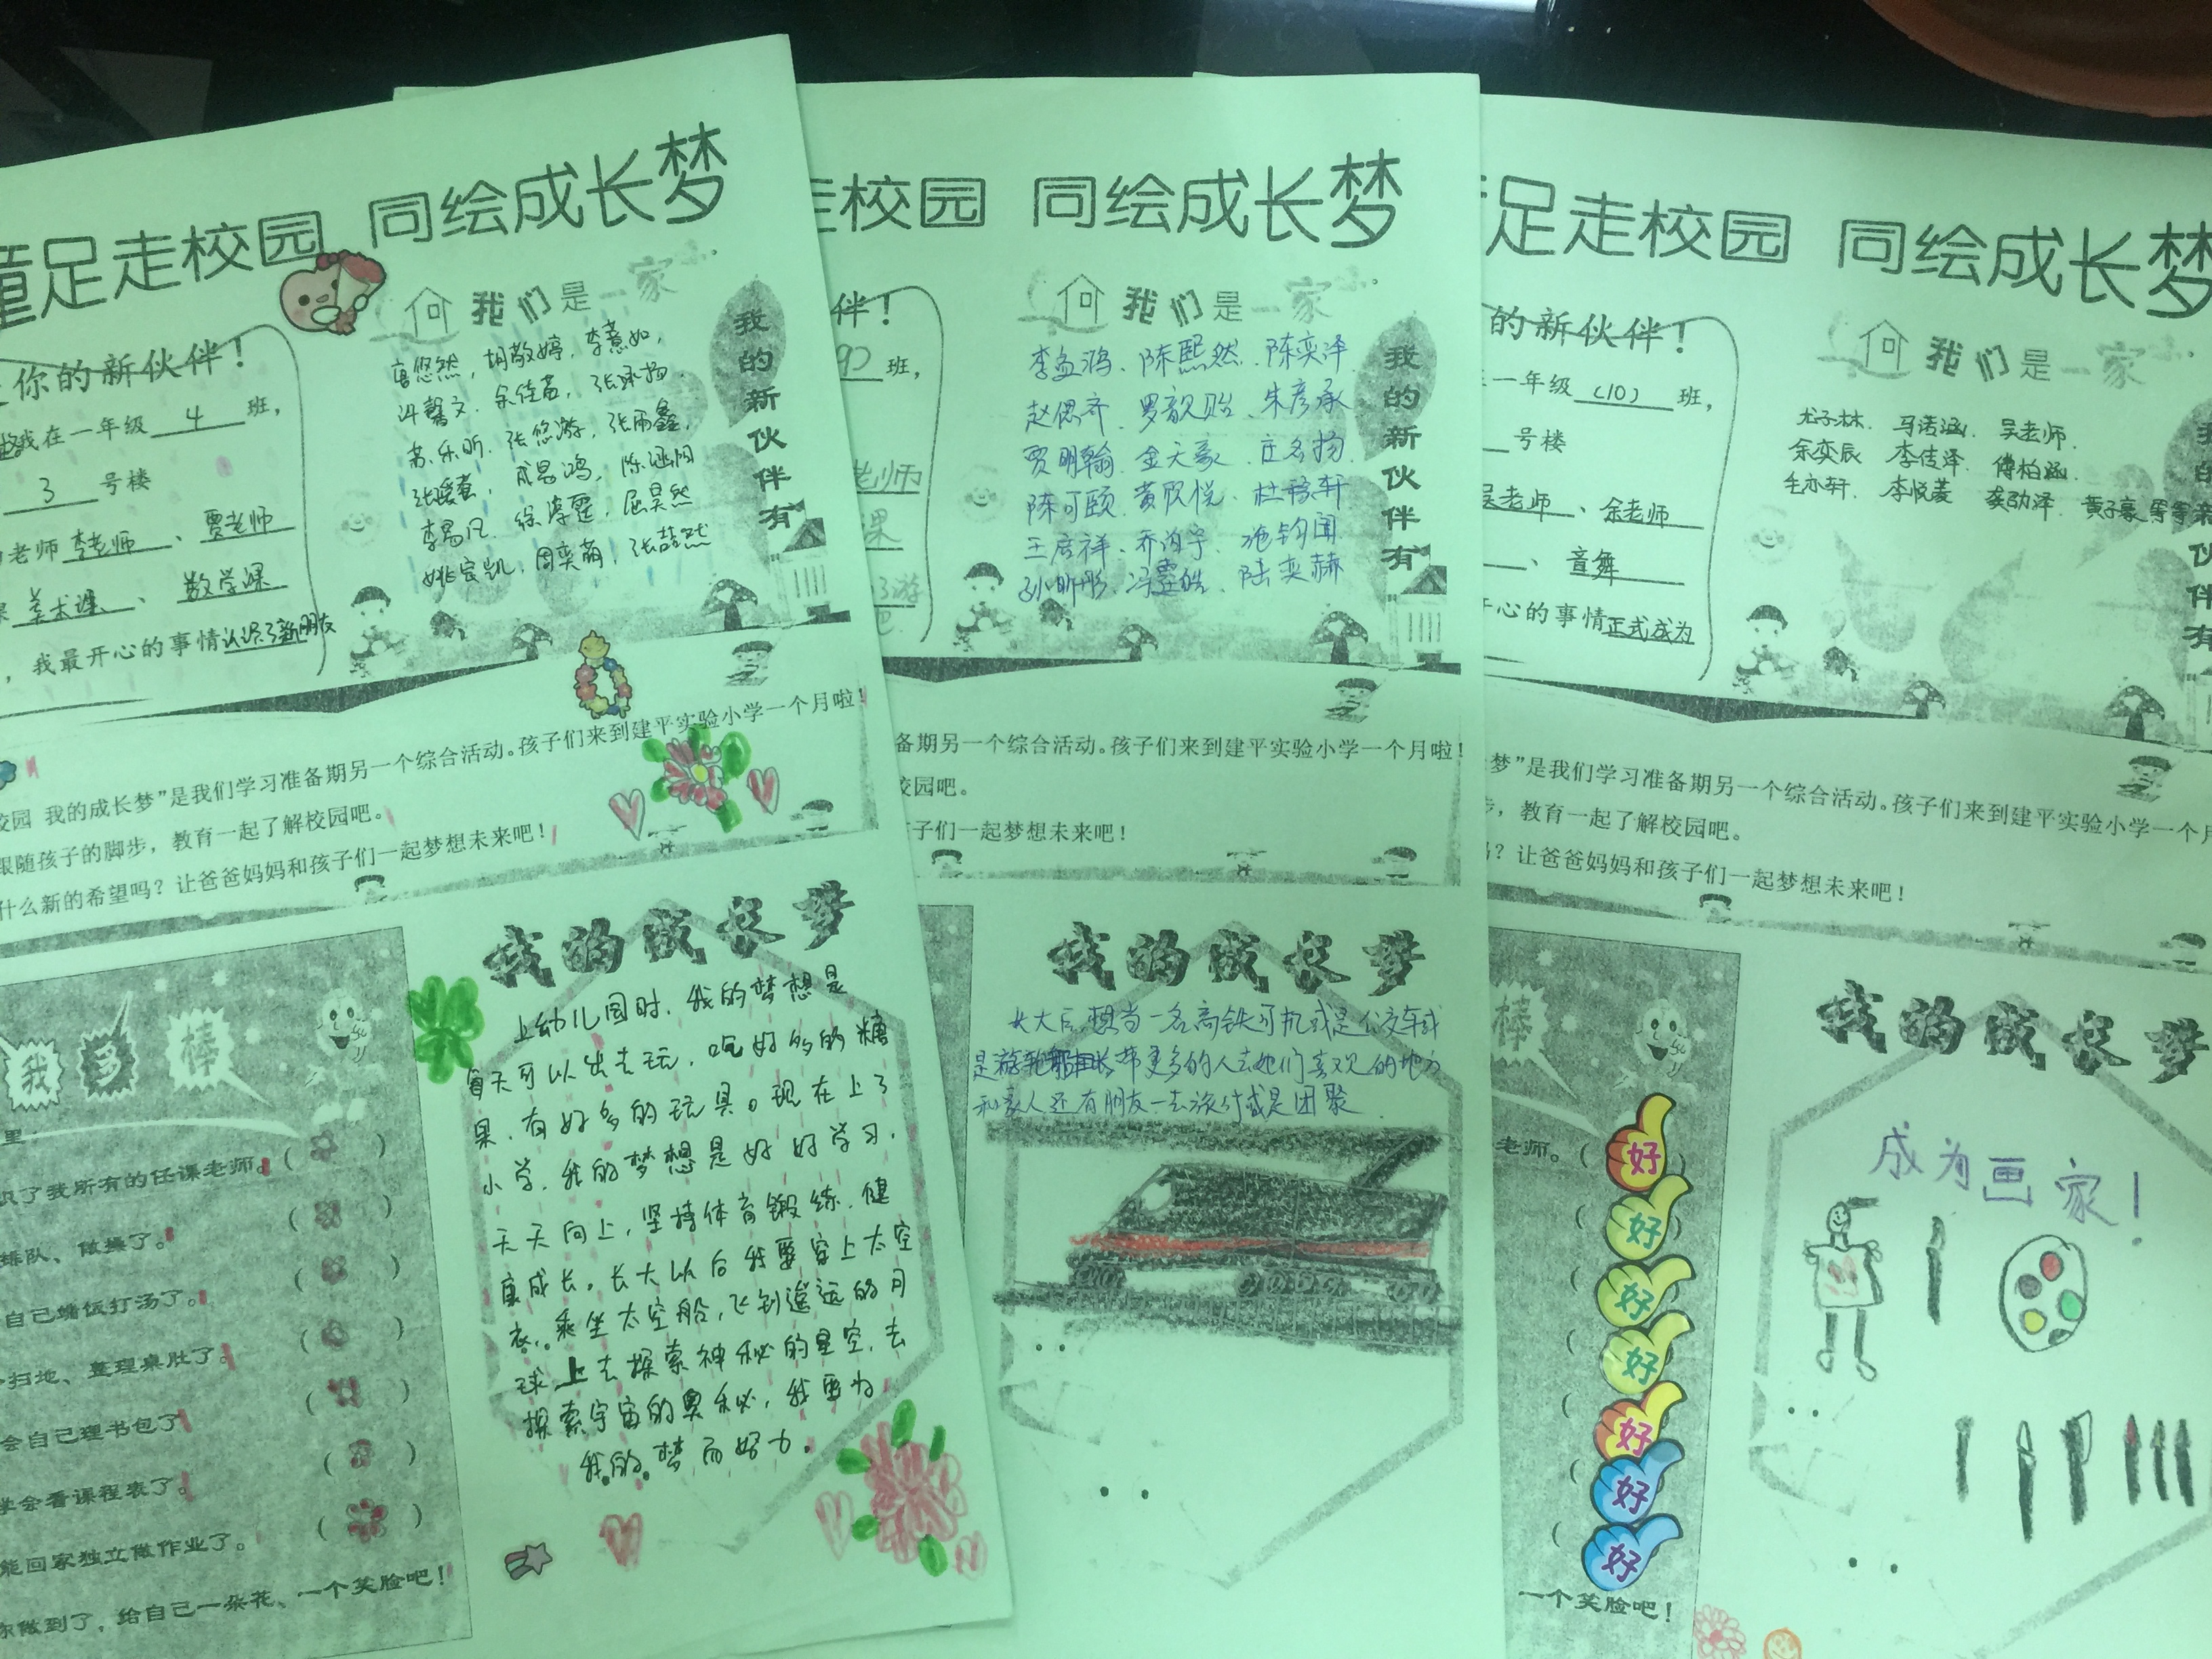 童足走校园 同绘成长梦
你的新伙伴！
我在一年级 4 班，
3 号楼
老师 李老师、贾老师
美术课、数学课
，我最开心的事情认识了新朋友
我们是一家
我的新伙伴有
胡敬婷，李薏如，
许馨文、余佳茗，张承扬，
苏乐昕、张悠游，张雨鑫，
成易鸿，陈涵润
李易凡
姚宸凯，周奕萌，张喆然
校园 我的成长梦”是我们学习准备期另一个综合活动。孩子们来到建平实验小学一个月啦！
跟随孩子的脚步，教育一起了解校园吧。
什么新的希望吗？让爸爸妈妈和孩子们一起梦想未来吧！
我多棒
识了我所有的任课老师。（ ）
排队、做操了。（ ）
自己端饭打汤了。（ ）
扫地、整理桌肚了。（ ）
会自己理书包了（ ）
学会看课程表了。（ ）
能回家独立做作业了。（ ）
你做到了，给自己一朵花、一个笑脸吧！
我的成长梦
上幼儿园时，我的梦想是
每天可以出去玩，吃好多的糖
果，有好多的玩具。现在上了
小学，我的梦想是好好学习，
天天向上，坚持体育锻练，健
康成长，长大以后我要穿上太空
衣，乘坐太空船，飞到遥远的月
球上去探索神秘的星空，去
探索宇宙的奥秘，我要为
我的梦而努力。
走校园 同绘成长梦
伴！
班，
老师
课
我们是一家
我的新伙伴有
李孟鸿、陈熙然、陈奕泽
朱彦承
贾明翰、金天豪、庄名扬
陈可颐、黄欣悦、
孙昕彤、陆奕赫
备期另一个综合活动。孩子们来到建平实验小学一个月啦！
校园吧。
子们一起梦想未来吧！
我的成长梦
长大后想当一名高铁司机或是公交车或
是游轮船长带更多的人去她们喜欢的地方
和家人还有朋友一去旅行或是团聚
足走校园 同绘成长梦
的新伙伴！
一年级（10）班，
号楼
吴老师、余老师
、音舞
开心的事情正式成为
我们是一家
尤子林、马诺涵、吴老师、
余奕辰 李佳泽、傅柏涵
李悦菱 龚劭泽、黄子豪等等
梦”是我们学习准备期另一个综合活动。孩子们来到建平实验小学一个月
，教育一起了解校园吧。
？让爸爸妈妈和孩子们一起梦想未来吧！
棒
老师。（好）
好
好
好
好
好
好
一个笑脸吧！
我的成长梦
成为画家！